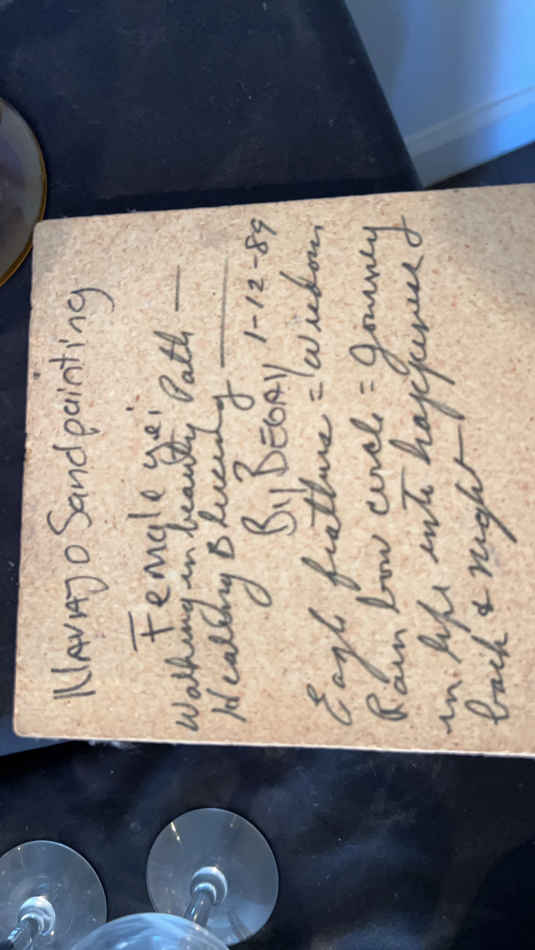 NAVAJO Sandpainting
Female yei
Walking in beauty Path —
Healing Blessing —
By BEGAY 1-12-89
Eagle feathers = Wisdom,
Rain bow circle = Journey
in life into happiness &
back & night